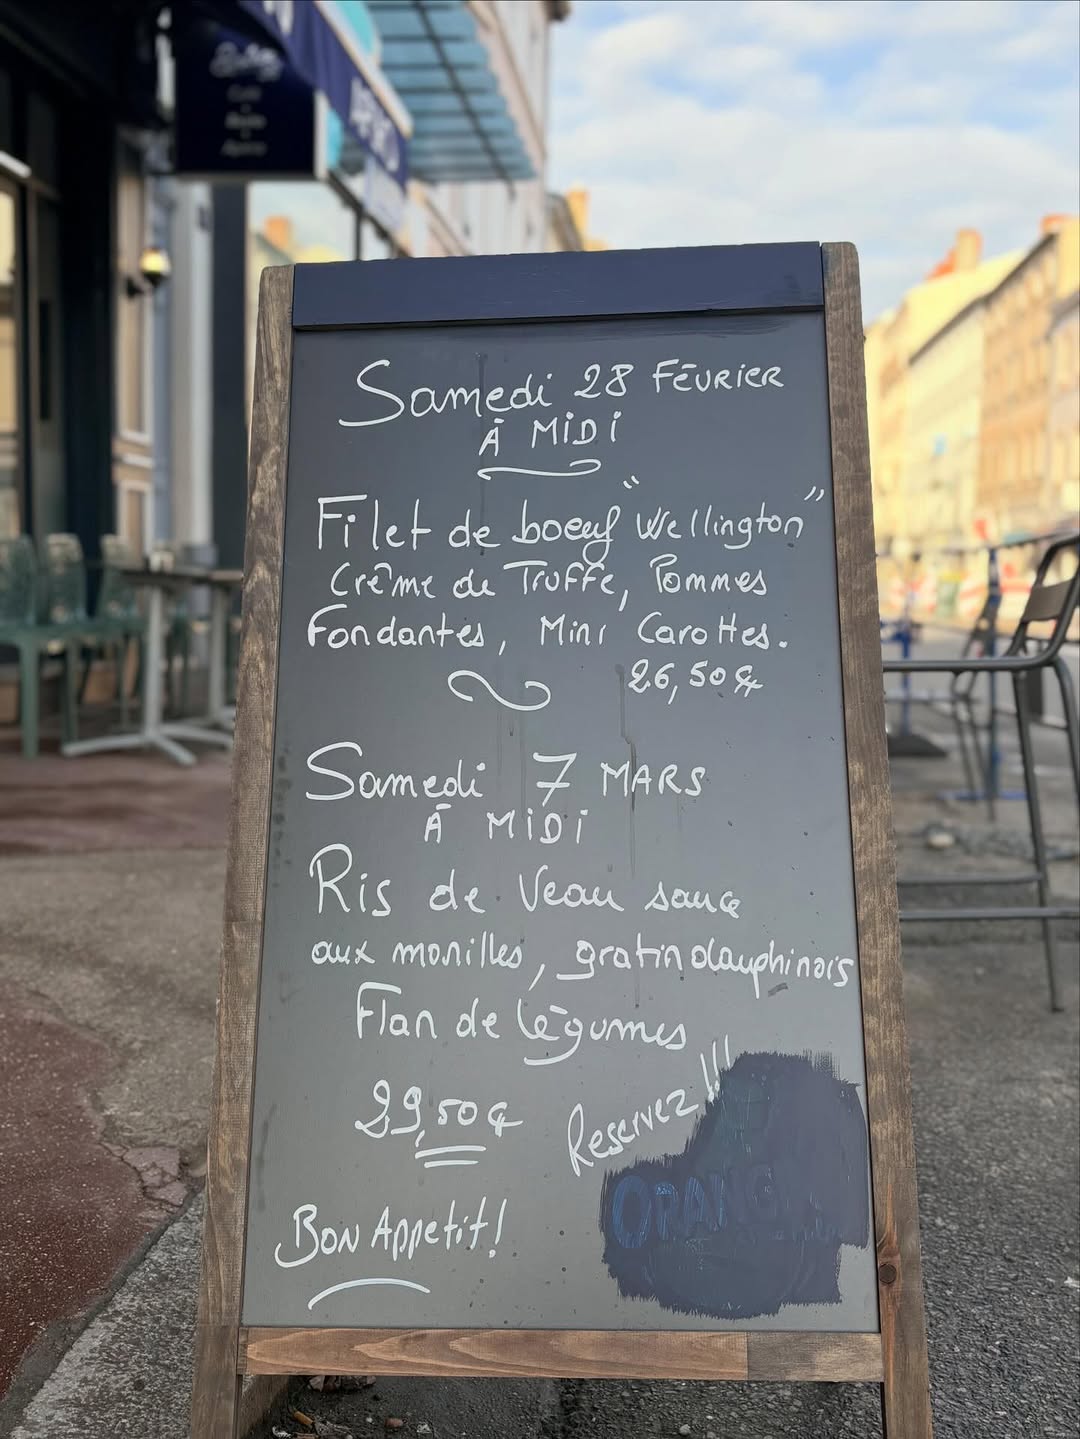 Samedi 28 FÉVRIER
À MiDi
Filet de boeuf "Wellington"
Crème de Truffe, Pommes
Fondantes, Mini Carottes.
26,50€
Samedi 7 MARS
À MiDi
Ris de Veau sauce
aux morilles, gratin dauphinois
Flan de légumes
29,50€
Reservez!!!
ORANG
Bon Appetit!